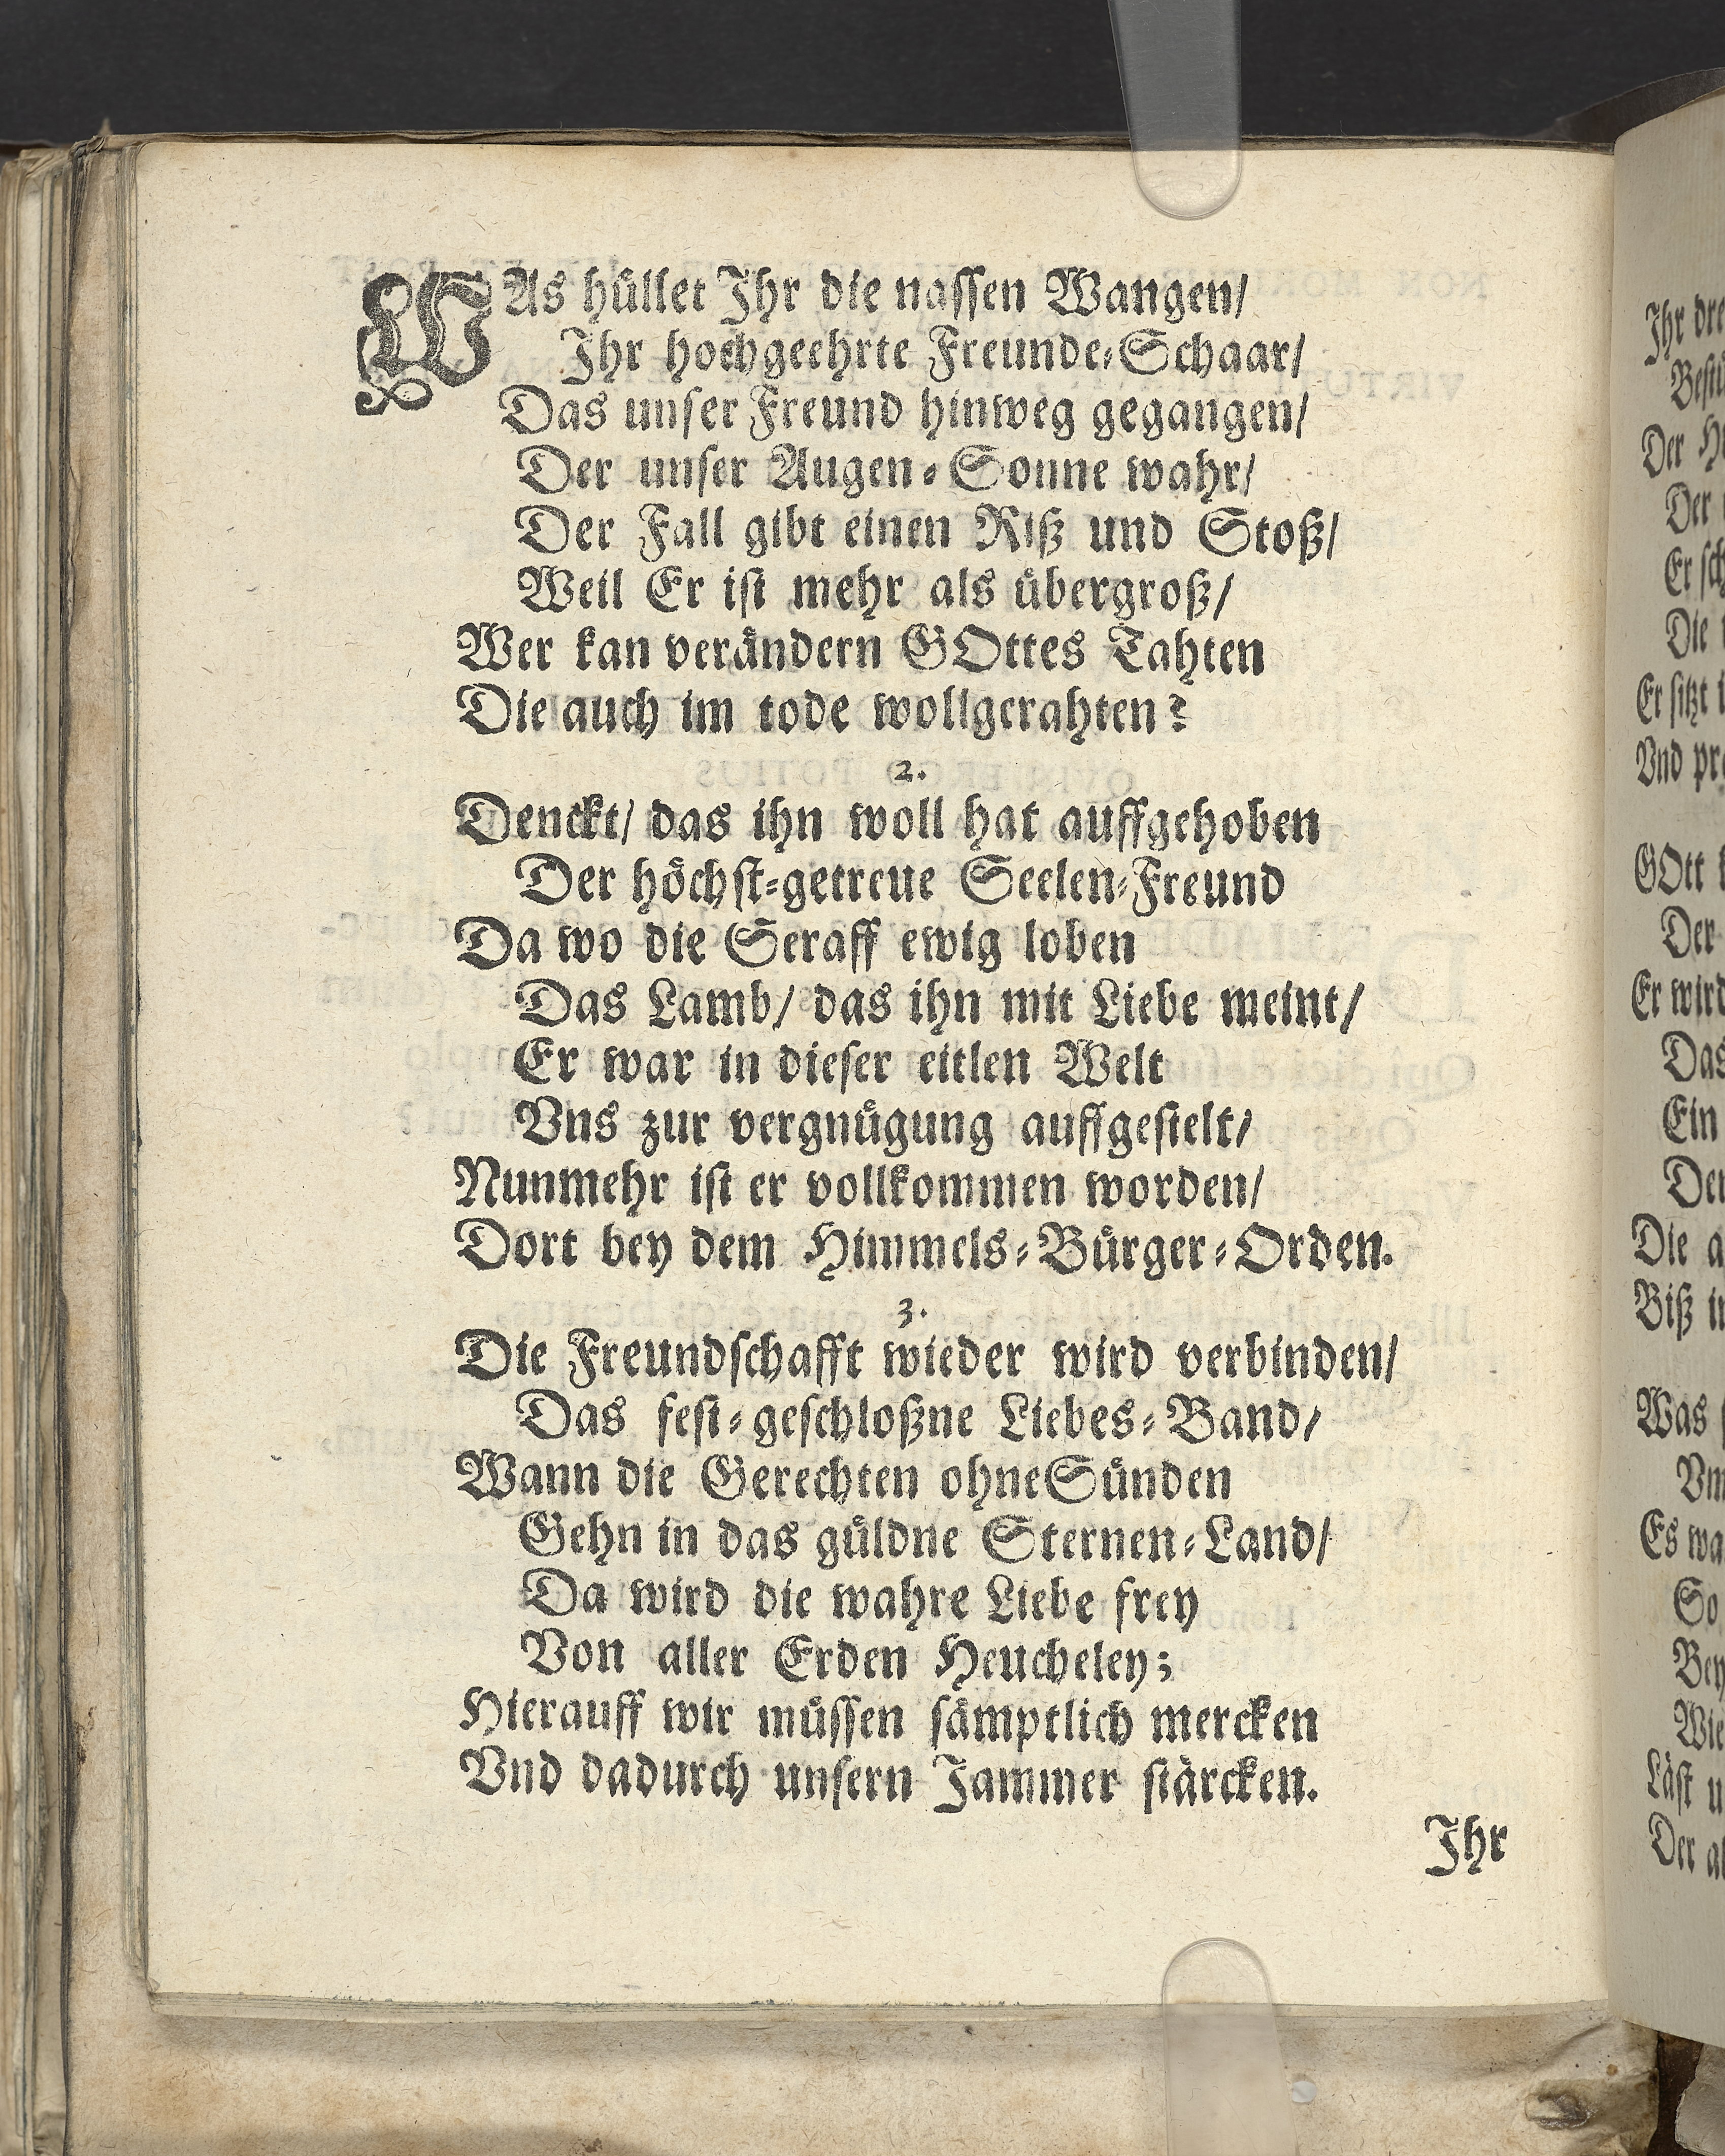 WAs hüllet Ihr die nassen Wangen/
Ihr hochgeehrte Freunde-Schaar/
Das unser Freund hinweg gegangen/
Der unser Augen-Sonne wahr/
Der Fall gibt einen Riß und Stoß/
Weil Er ist mehr als übergroß/
Wer kan verändern GOttes Tahten
Die auch im tode wollgerahten?
2.
Denckt/ das ihn woll hat auffgehoben
Der höchst-getreue Seelen-Freund
Da wo die Seraff ewig loben
Das Lamb/ das ihn mit Liebe meint/
Er war in dieser eitlen Welt
Vns zur vergnügung auffgestelt/
Nunmehr ist er vollkommen worden/
Dort bey dem Himmels-Bürger-Orden.
3.
Die Freundschafft wieder wird verbinden/
Das fest-geschloßne Liebes-Band/
Wann die Gerechten ohne Sünden
Gehn in das güldne Sternen-Land/
Da wird die wahre Liebe frey
Von aller Erden Heucheley;
Hierauff wir müssen sämptlich mercken
Vnd dadurch unsern Jammer stärcken.
Ihr
Ihr
Der
Der
Er
Die
Er sitzt
Vnd
GOtt
Der
Er wird
Das
Ein
Die
Biß
Was
Es
So
Bey
Wie
Läst
Der